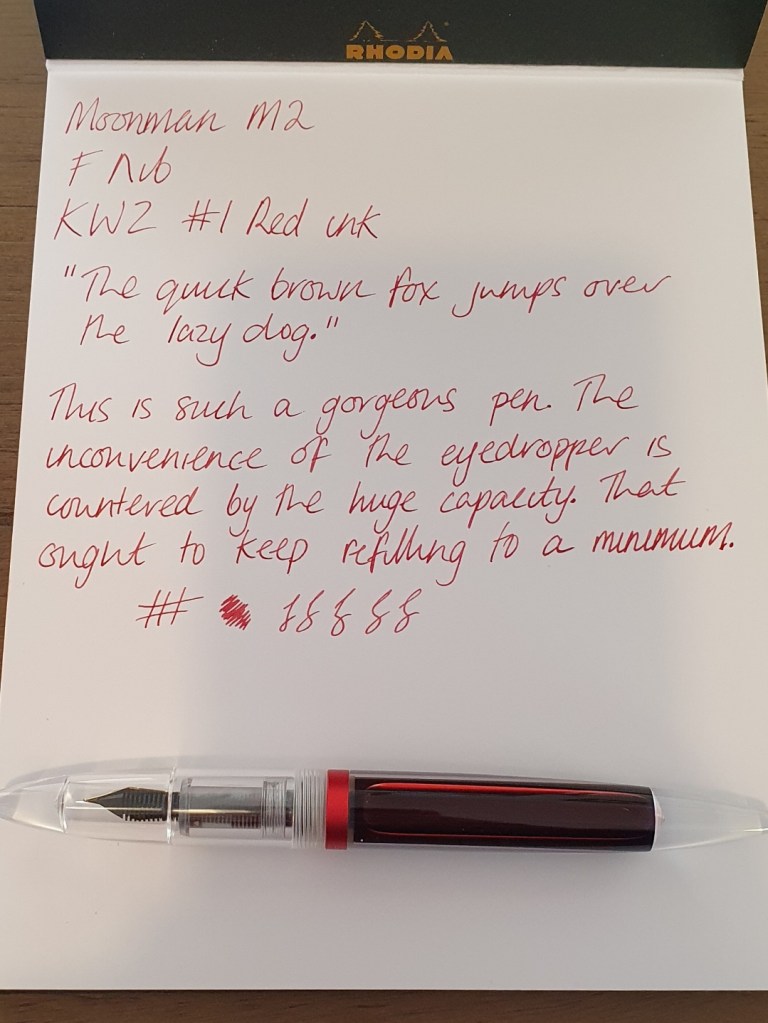 RHODIA
Moonman M2
F Nib
KWZ #1 Red ink
"The quick brown fox jumps over
the lazy dog."
This is such a gorgeous pen. The
inconvenience of the eyedropper is
countered by the huge capacity. That
ought to keep refilling to a minimum.
##